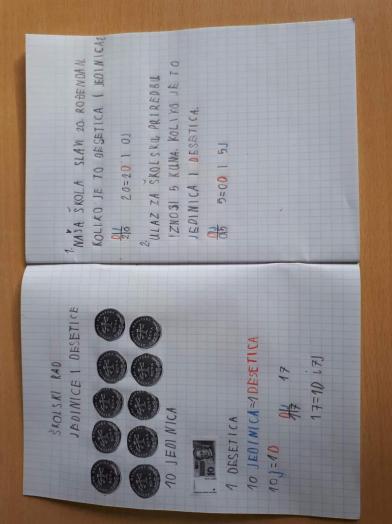 ŠKOLSKI RAD
JEDINICE I DESETICE
10 JEDINICA
10
1 DESETICA
10 JEDINICA=1DESETICA
10J=1D
DJ
17 17
17=1D i 7J
1. NAŠA ŠKOLA SLAVI 20. ROĐENDAN.
KOLIKO JE TO DESETICA I JEDINICA?
DJ
20 20=2D I 0J
2. ULAZ ZA ŠKOLSKU PRIREDBU
IZNOSI 5 KUNA. KOLIKO JE TO
JEDINICA I DESETICA.
DJ
05 5=0D I 5J